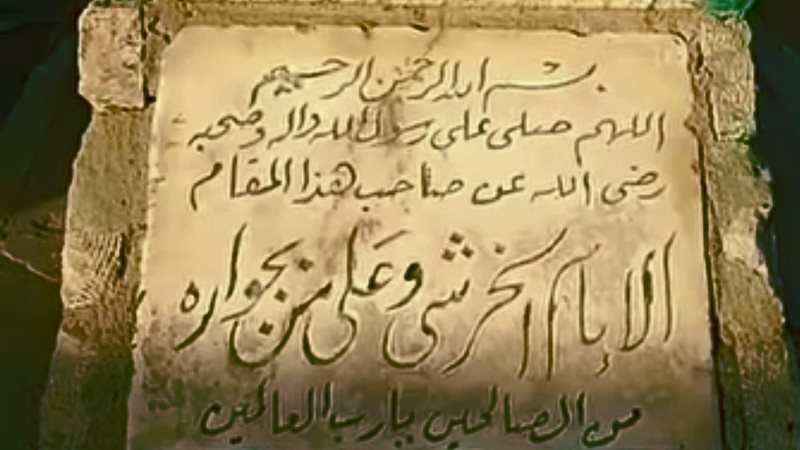 بسم الله الرحمن الرحيم
اللهم صلى على رسول الله واله وصحبه
رضى الله عن صاحب هذا المقام
الإمام الخرشى وعلى من بجواره
من الصالحين يارب العالمين